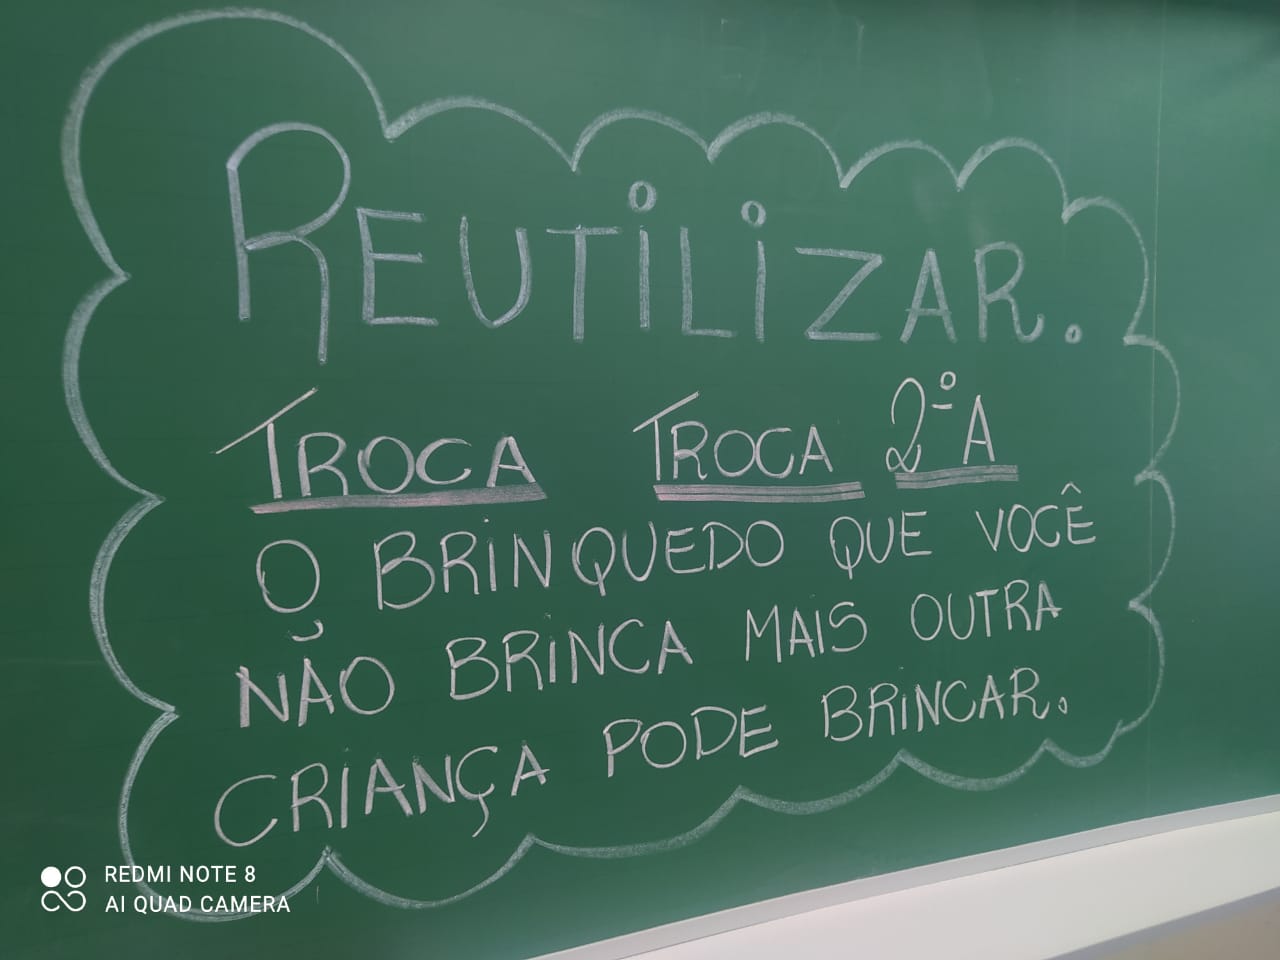 REUTILIZAR.
TROCA TROCA 2º A
O BRINQUEDO QUE VOCÊ
NÃO BRINCA MAIS OUTRA
CRIANÇA PODE BRINCAR.
REDMI NOTE 8
AI QUAD CAMERA